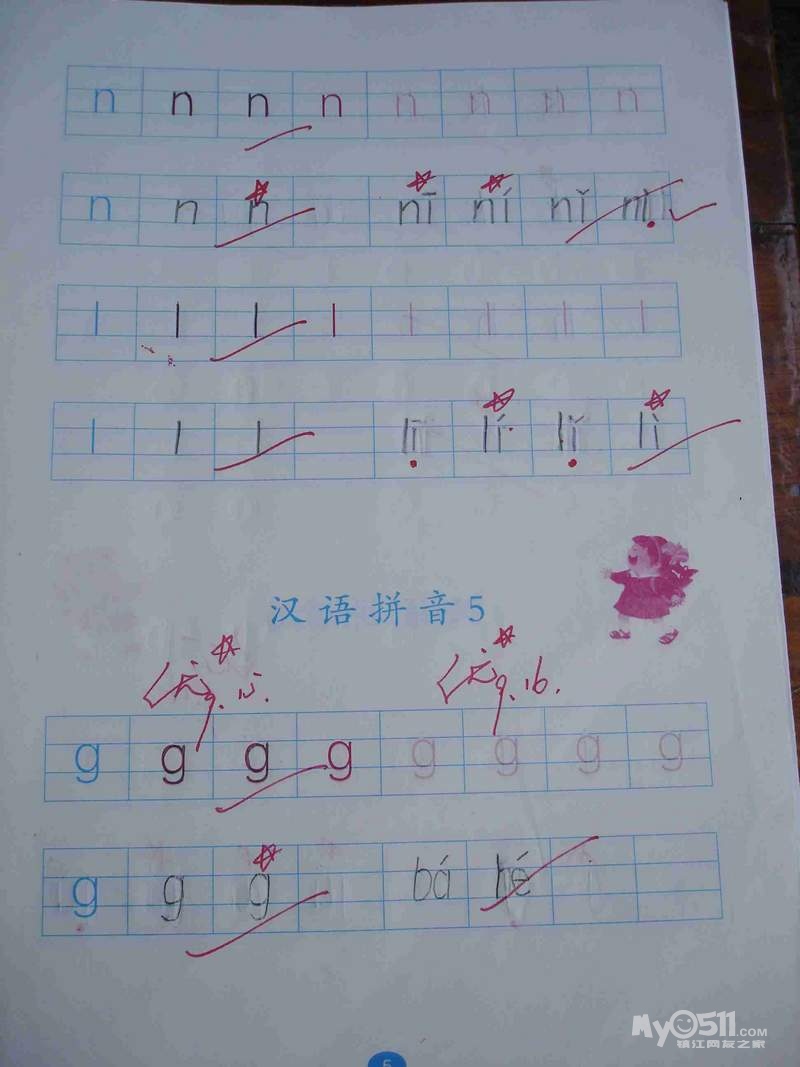 n n n n n n n n
n n n nī ní nǐ nì
l l l l l l l l
l l l lī lí lǐ lì
汉语拼音5
优 9.15. 优 9.16.
g g g g g g g g
g g g bá hé
5
My0511.COM
镇江网友之家